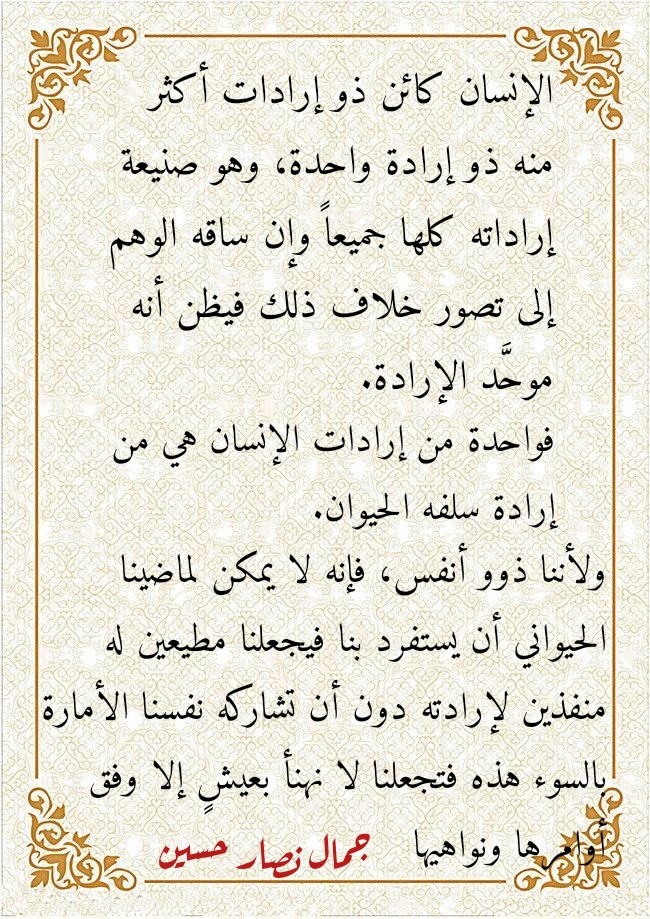 الإنسان كائن ذو إرادات أكثر
منه ذو إرادة واحدة، وهو صنيعة
إراداته كلها جميعاً وإن ساقه الوهم
إلى تصور خلاف ذلك فيظن أنه
موحَّد الإرادة.
فواحدة من إرادات الإنسان هي من
إرادة سلفه الحيوان.
ولأننا ذوو أنفس، فإنه لا يمكن لماضينا
الحيواني أن يستفرد بنا فيجعلنا مطيعين له
منفذين لإرادته دون أن تشاركه نفسنا الأمارة
بالسوء هذه فتجعلنا لا نهنأ بعيشٍ إلا وفق
أوامرها ونواهيها جمال نصار حسين